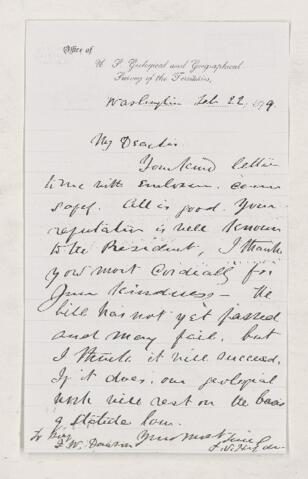 Office of
U. S. Geological and Geographical
Survey of the Territories,
Washington Feb 22, 1879.
My Dear Sir
Your kind letter
to me with enclosure came
safely. All is good. Your
reputation is well known
to the President, I thank
you most cordially for
your kindness - the
bill has not yet passed
and may fail, but
I think it will succeed.
If it does, our geological
work will rest on the basis
of statute law.
Yours most
J. W. Dawson F. V. Hayden